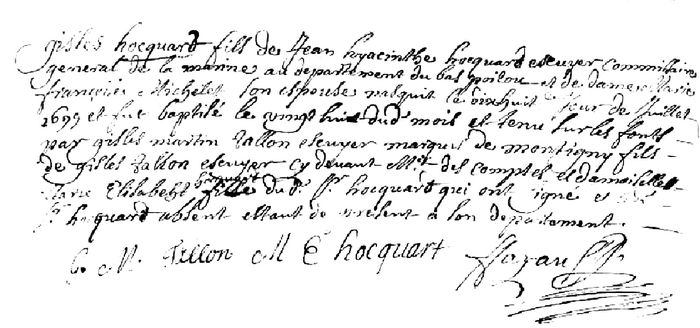 Gilles hocquard fils de Jean hyacinthe hocquard escuyer Commissaire
general de la marine au departement du bas poitou et de dame Marie
françoise Michelet son espouse nasquit le dixhuit Jour de Juillet
1699 et fut baptisé le vingt huit dud. mois et tenu sur les fonts
par gilles martin Tallon escuyer marquis de montigny fils
de gilles Tallon escuyer cy devant Mtr des comptes et damoiselle
Marie Elisabeth hocquart fille du d. Sr. hocquart qui ont signé
Sr. hocquard absent estant de present a son departement.
G. M. Tallon M E hocquart